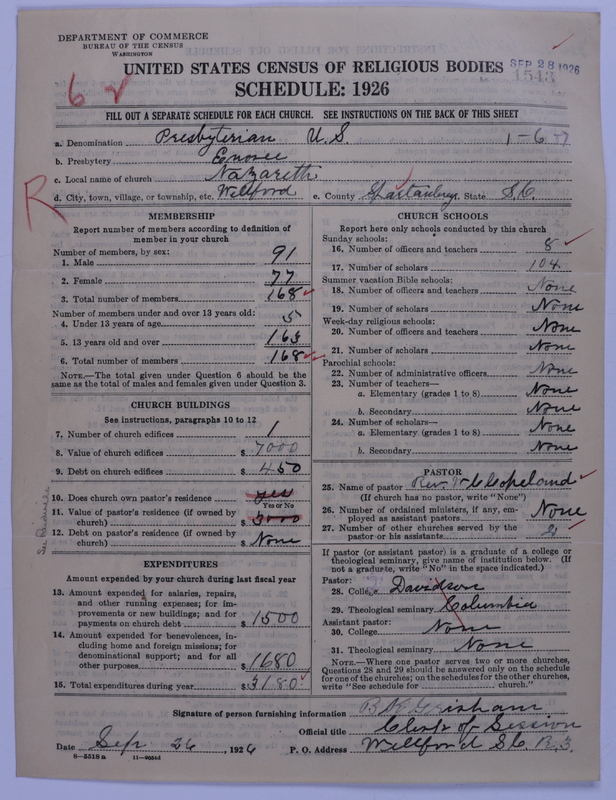 DEPARTMENT OF COMMERCE
BUREAU OF THE CENSUS
WASHINGTON
SEP 28 1926
1543
UNITED STATES CENSUS OF RELIGIOUS BODIES
SCHEDULE: 1926
FILL OUT A SEPARATE SCHEDULE FOR EACH CHURCH. SEE INSTRUCTIONS ON THE BACK OF THIS SHEET
a. Denomination Presbyterian U. S. 1-6-7
b. Presbytery Enoree
c. Local name of church Nazareth
d. City, town, village, or township, etc. Wellford e. County Spartanburg State S.C.
MEMBERSHIP
Report number of members according to definition of member in your church
Number of members, by sex:
1. Male 91
2. Female 77
3. Total number of members 168
Number of members under and over 13 years old:
4. Under 13 years of age 5
5. 13 years old and over 163
6. Total number of members 168
NOTE.—The total given under Question 6 should be the same as the total of males and females given under Question 3.
CHURCH BUILDINGS
See instructions, paragraphs 10 to 12
7. Number of church edifices 1
8. Value of church edifices $ 7000
9. Debt on church edifices $ 450
10. Does church own pastor's residence yes
Yes or No
11. Value of pastor's residence (if owned by church) $ 3000
12. Debt on pastor's residence (if owned by church) $ None
EXPENDITURES
Amount expended by your church during last fiscal year
13. Amount expended for salaries, repairs, and other running expenses; for improvements or new buildings; and for payments on church debt $ 1500
14. Amount expended for benevolences, including home and foreign missions; for denominational support; and for all other purposes $ 1680
15. Total expenditures during year $ 3180
CHURCH SCHOOLS
Report here only schools conducted by this church
Sunday schools:
16. Number of officers and teachers 8
17. Number of scholars 104
Summer vacation Bible schools:
18. Number of officers and teachers None
19. Number of scholars None
Week-day religious schools:
20. Number of officers and teachers None
21. Number of scholars None
Parochial schools:
22. Number of administrative officers None
23. Number of teachers—
a. Elementary (grades 1 to 8) None
b. Secondary None
24. Number of scholars—
a. Elementary (grades 1 to 8) None
b. Secondary None
PASTOR
25. Name of pastor Rev. W C Copeland
(If church has no pastor, write "None")
26. Number of ordained ministers, if any, employed as assistant pastors None
27. Number of other churches served by the pastor or his assistants 2
If pastor (or assistant pastor) is a graduate of a college or theological seminary, give name of institution below. (If not a graduate, write "No" in the space indicated.)
Pastor:
28. College Davidson
29. Theological seminary Columbia
Assistant pastor:
30. College None
31. Theological seminary None
NOTE.—Where one pastor serves two or more churches, Questions 28 and 29 should be answered only on the schedule for one of the churches; on the schedules for the other churches, write "See schedule for church."
Signature of person furnishing information Grisham
Official title Clerk of Session
Date Sep 26, 1926 P. O. Address Wellford S.C. R.3.
8—5518a 11—9056d